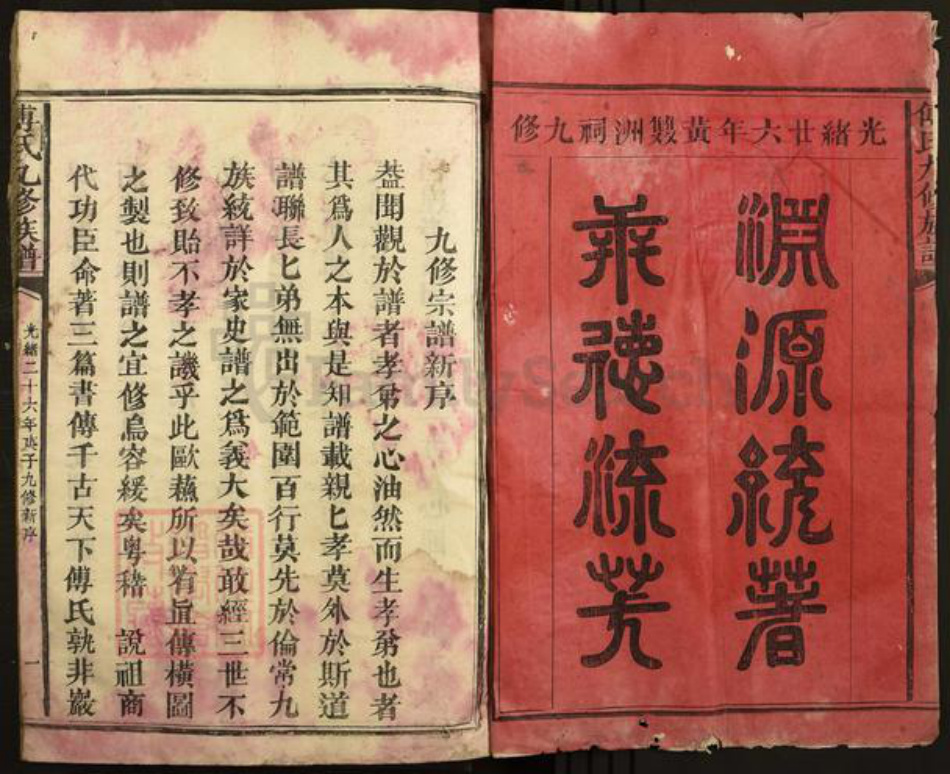 光緒廿六年黃雙洲祠九修
淵源統著
業德流芳
傅氏九修族譜
九修宗譜新序
盖聞觀於譜者孝弟之心油然而生孝弟也者
其爲人之本與是知譜載親匕孝莫外於斯道
譜聯長匕弟無出於範圍百行莫先於倫常九
族統詳於家史譜之爲義大矣哉敢經三世不
修致貽不孝之譏乎此歐蘇所以有直傳橫圖
之製也則譜之宜修烏容緩矣粵稽 說祖商
代功臣命著三篇書傳千古天下傅氏孰非巖
傅氏九修族譜
光緒二十六年庚子九修新序
一
FamilySearch